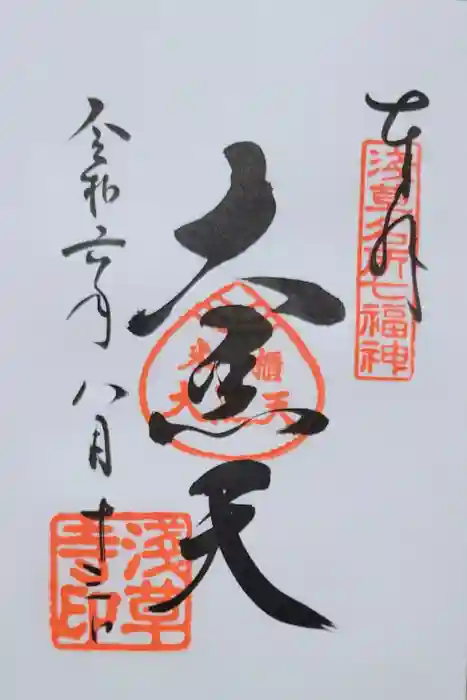 奉拝
浅草名所七福神
大黒天
令和六年八月十二日
浅草寺印